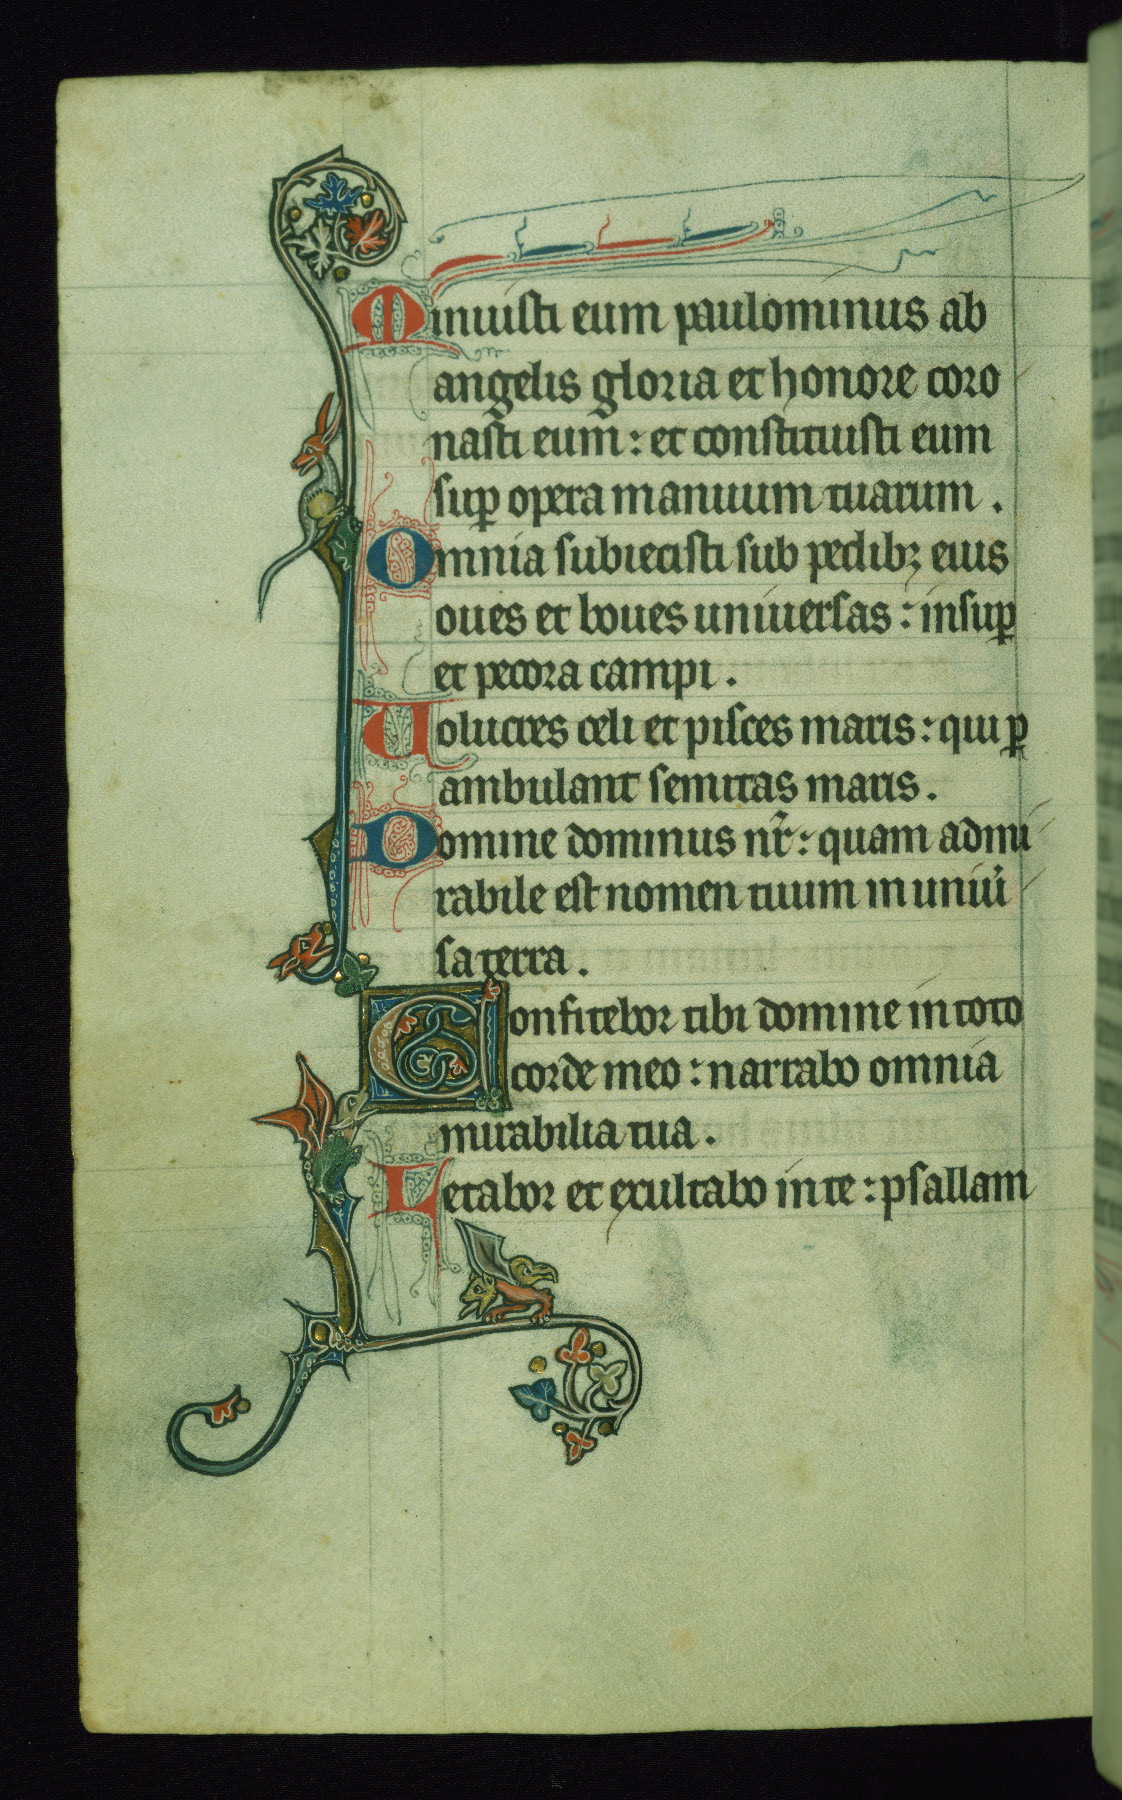 Minuisti eum paulominus ab
angelis gloria et honore coro
nasti eum: et constituisti eum
sup̲ opera manuum tuarum.
Omnia subiecisti sub pedibꝫ eius
oues et boues uniuersas: insuꝑ
et pecora campi.
Uolucres celi et pisces maris: qui ꝑ
ambulant semitas maris.
Domine dominus nr̃: quam admi
rabile est nomen tuum in uniu̾
sa terra.
Confitebor tibi domine in toto
corde meo: narrabo omnia
mirabilia tua.
Letabor et exultabo in te: psallam